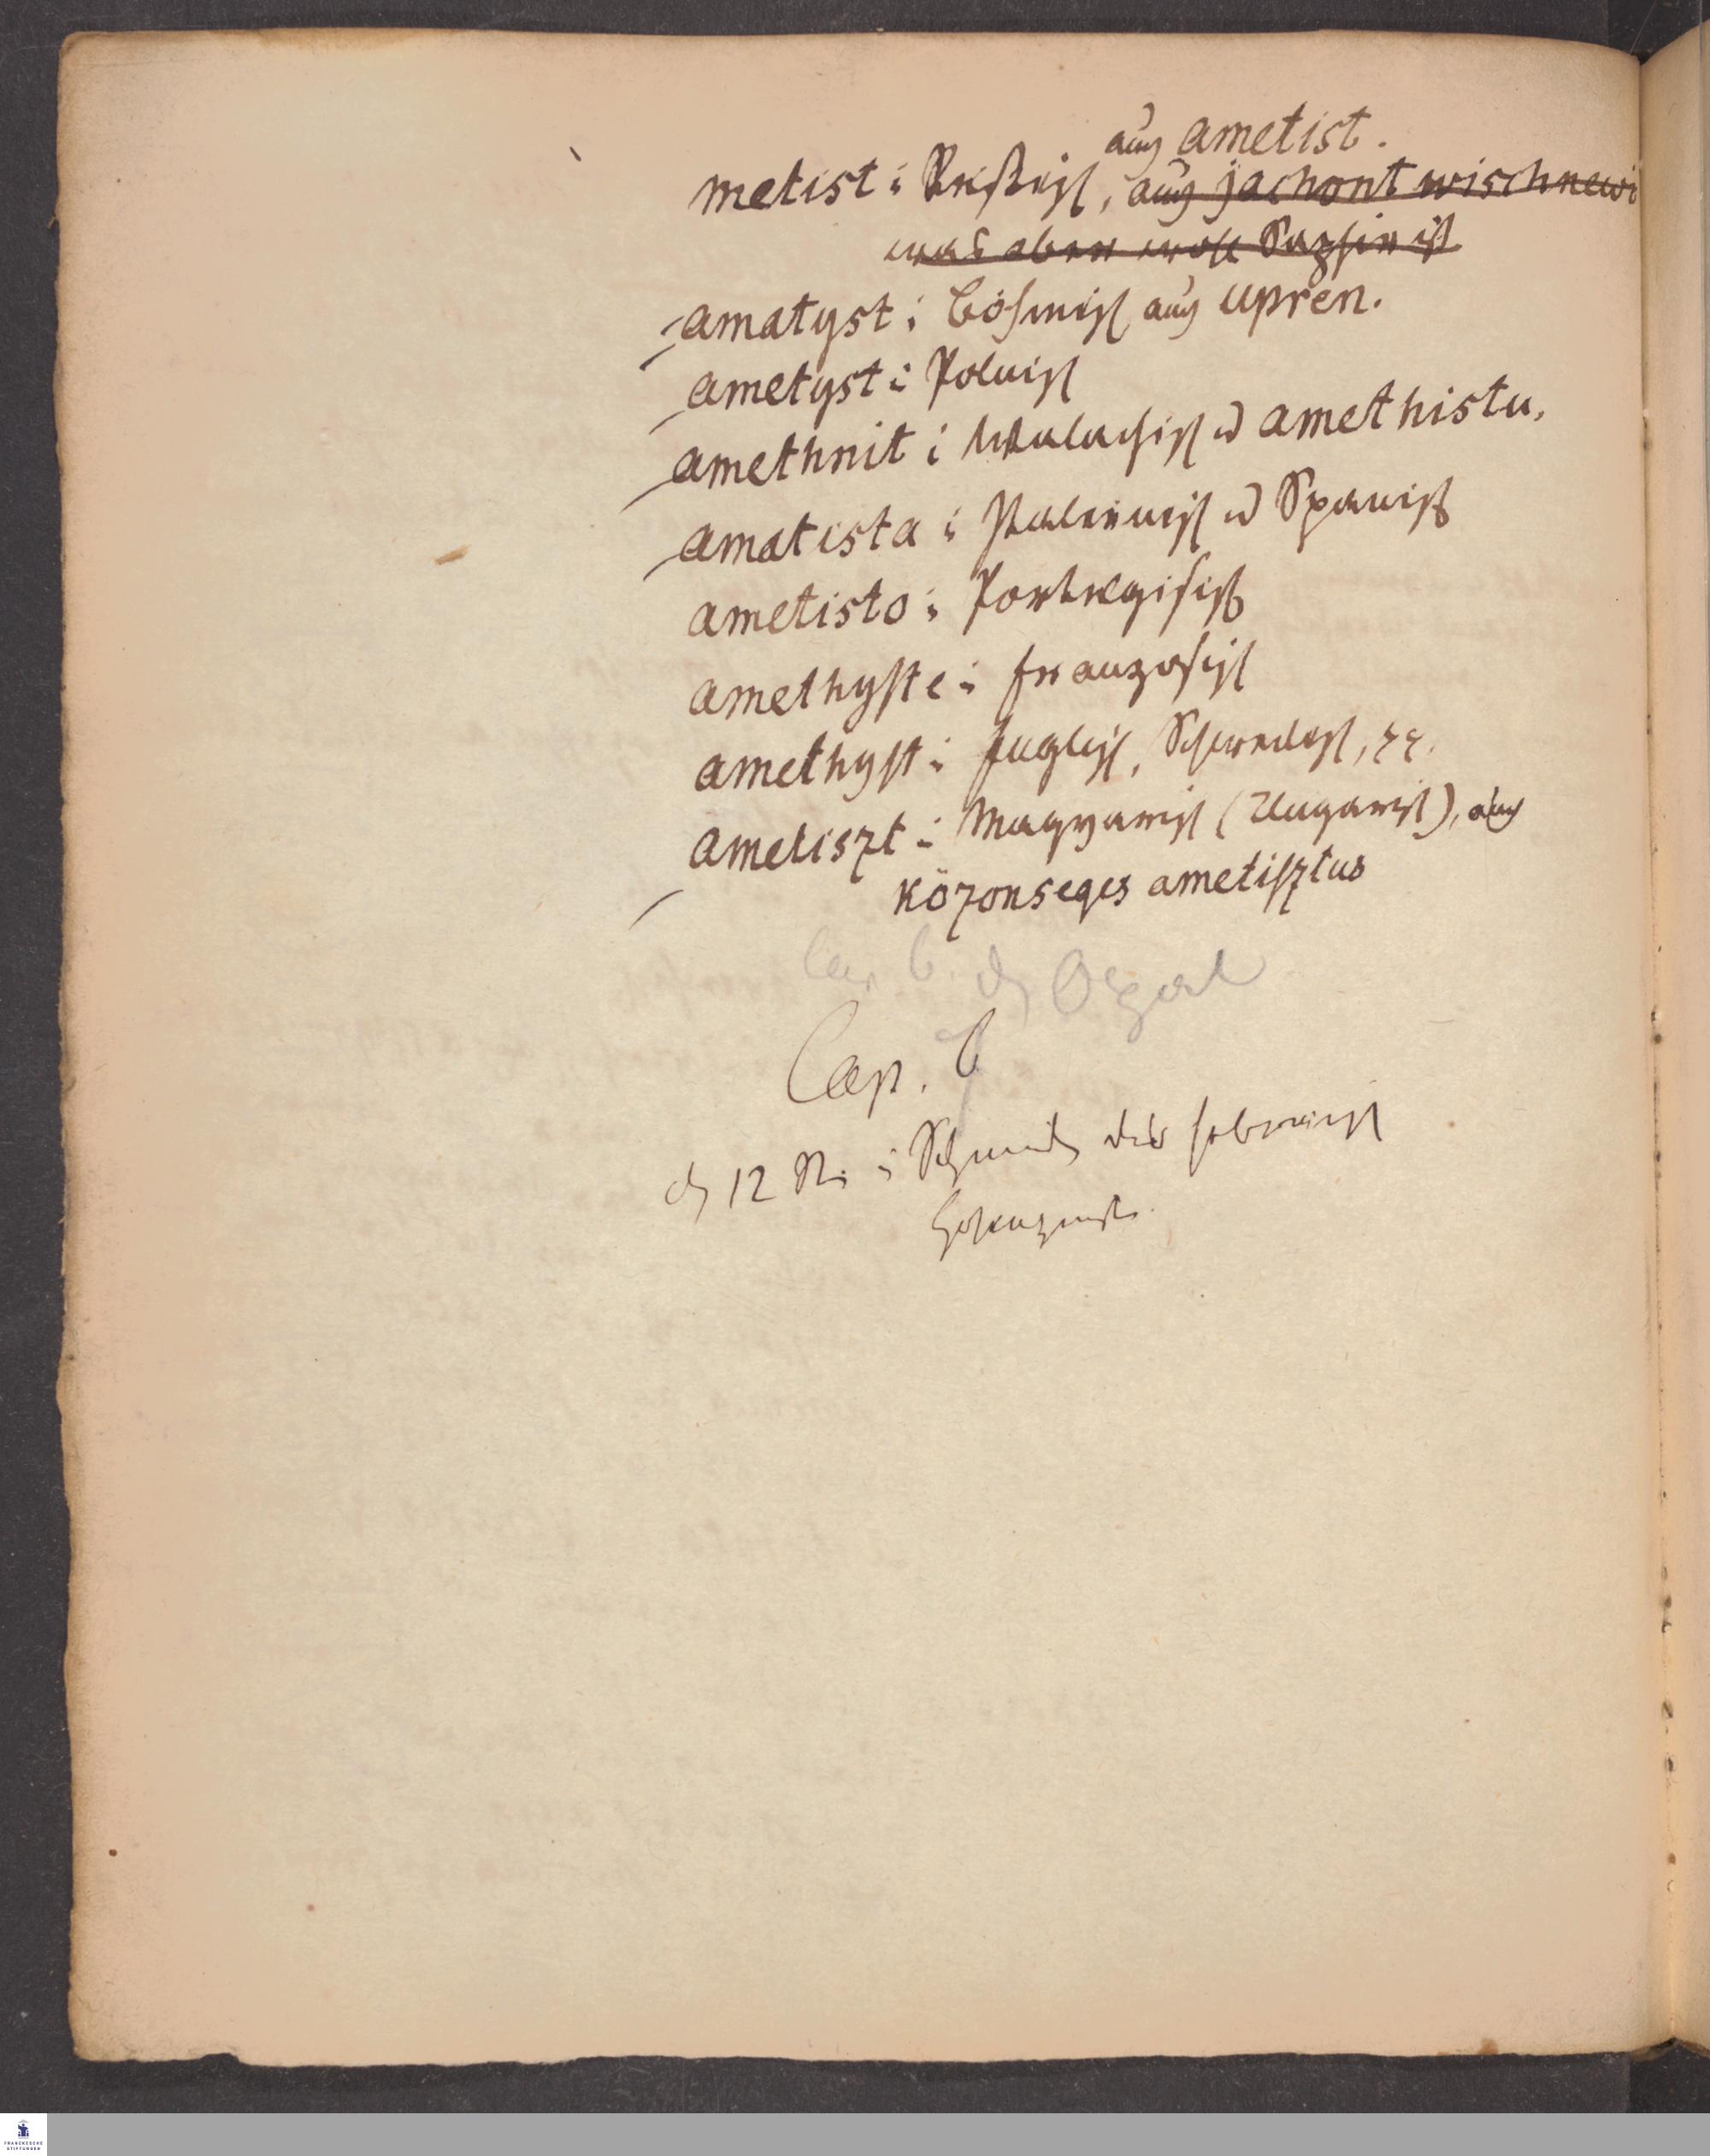 auch ametist.
metist i Russisch, auch jachont wischnewi
was aber wohl Saphir ist
amatyst i böhmisch auch upren.
ametyst i Polnisch
amethnit i Walachisch u amethistu,
amatista i Italienisch u Spanisch
ametisto i Portugisisch
amethyste i französisch
amethyst i Englisch, Schwedisch, ꝛc.
ametiszt i Magyarisch (Ungarisch), auch
közonseges ametisztus
Cap. 6. d Opal
Cap. 6
d 12 St. i Schmuck des hebräisch
Hohenpriest.
FRANCKESCHE
STIFTUNGEN